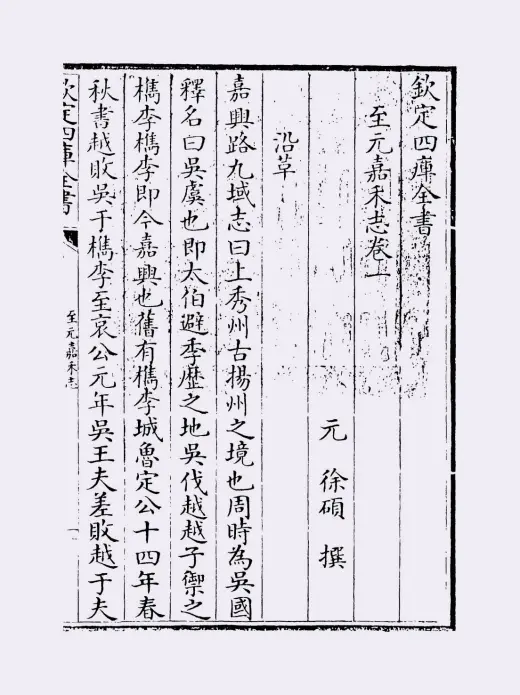 欽定四庫全書
至元嘉禾志卷一
元 徐碩 撰
沿革
嘉興路九域志曰上秀州古揚州之境也周時為吳國
釋名曰吳虞也即太伯避季歷之地吳伐越越子禦之
檇李檇李即今嘉興也舊有檇李城魯定公十四年春
秋書越敗吳于檇李至哀公元年吳王夫差敗越于夫
欽定四庫全書
至元嘉禾志
一